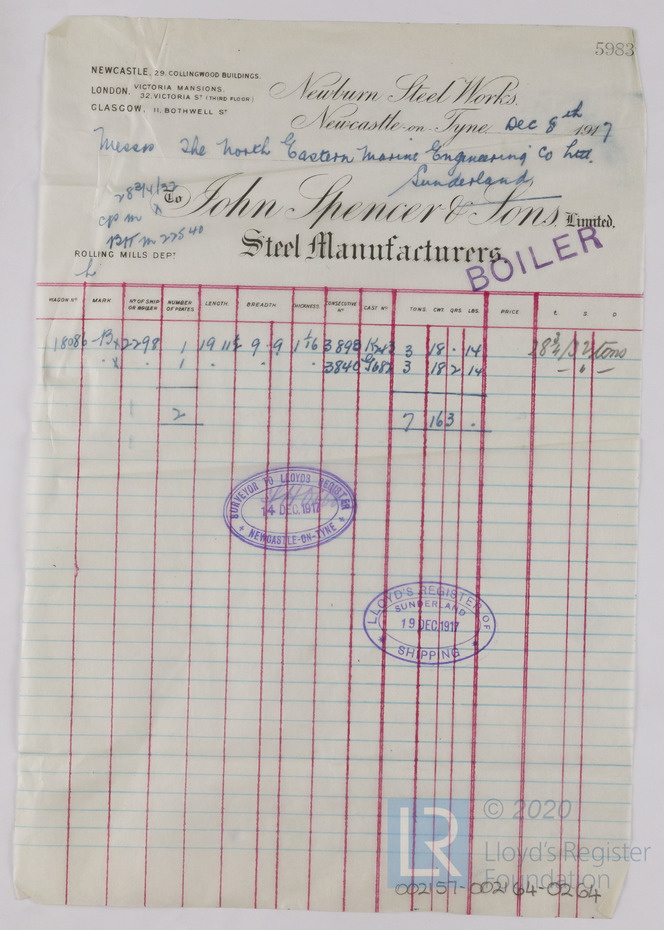 5983
NEWCASTLE, 29, COLLINGWOOD BUILDINGS.
LONDON, VICTORIA MANSIONS, 32, VICTORIA ST (THIRD FLOOR)
GLASGOW, 11, BOTHWELL ST
Newburn Steel Works,
Newcastle-on-Tyne, Dec 8th 1917
Messrs The North Eastern Marine Engineering Co Ltd.
Sunderland
To John Spencer & Sons, Limited.
Steel Manufacturers.
ROLLING MILLS DEPT
BOILER
WAGON No MARK No OF SHIP OR BOILER NUMBER OF PLATES LENGTH. BREADTH. THICKNESS. CONSECUTIVE No CAST No TONS CWT. QRS. LBS. PRICE. £. S. D
18086 2298 1 19 11½ 9 9 1 1/16 3 18 . 14 28¾/32 tons
1 3840 3 18 2 14
2 7 16 3 .
SURVEYOR TO LLOYDS REGISTER
14 DEC. 1917
NEWCASTLE-ON-TYNE
LLOYD'S REGISTER OF
SUNDERLAND
19 DEC. 1917
SHIPPING
LR
© 2020
Lloyd's Register
Foundation
002157-002164-0264